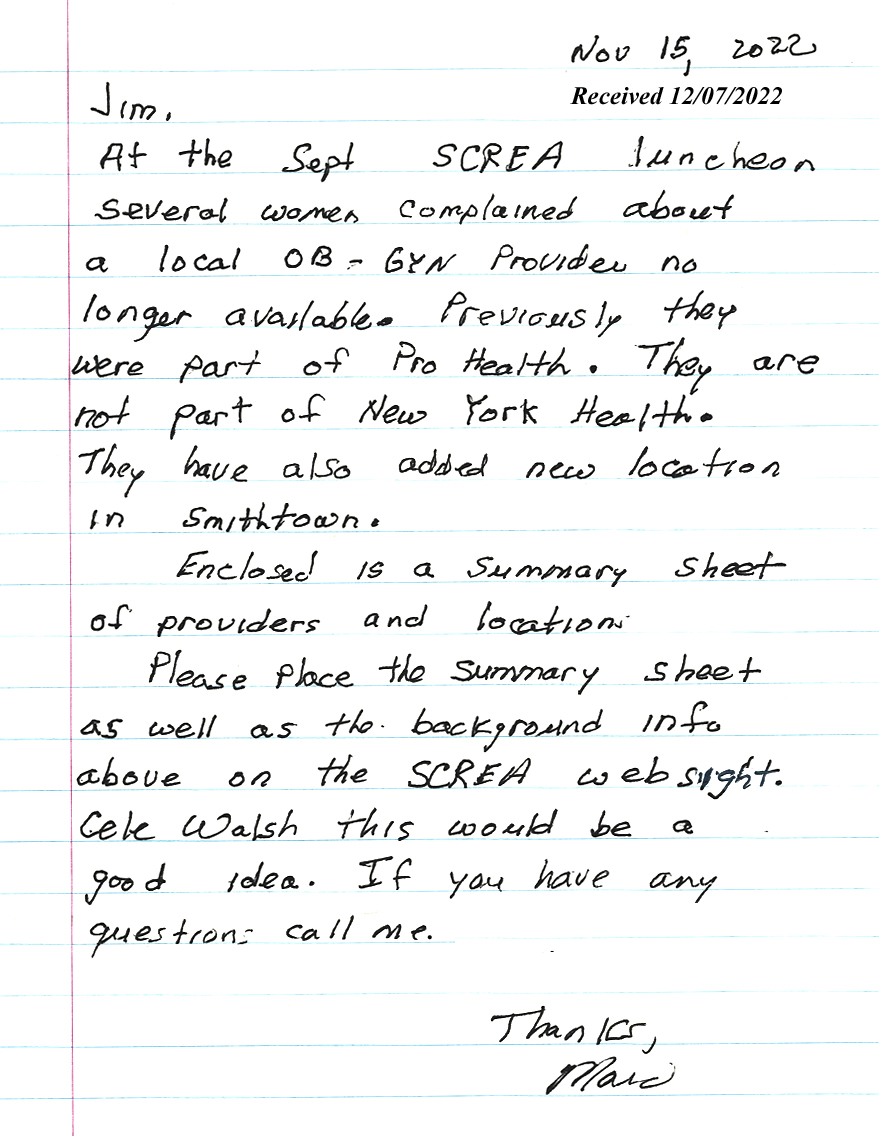 Nov 15, 2022
Received 12/07/2022
Jim,
At the Sept SCREA luncheon
several women complained about
a local OB-GYN Provider no
longer available. Previously they
were part of Pro Health. They are
not part of New York Health.
They have also added new location
in Smithtown.
Enclosed is a summary sheet
of providers and location
Please place the summary sheet
as well as the background info
above on the SCREA web sight.
Cele Walsh this would be a
good idea. If you have any
questions call me.
Thanks,
Marc